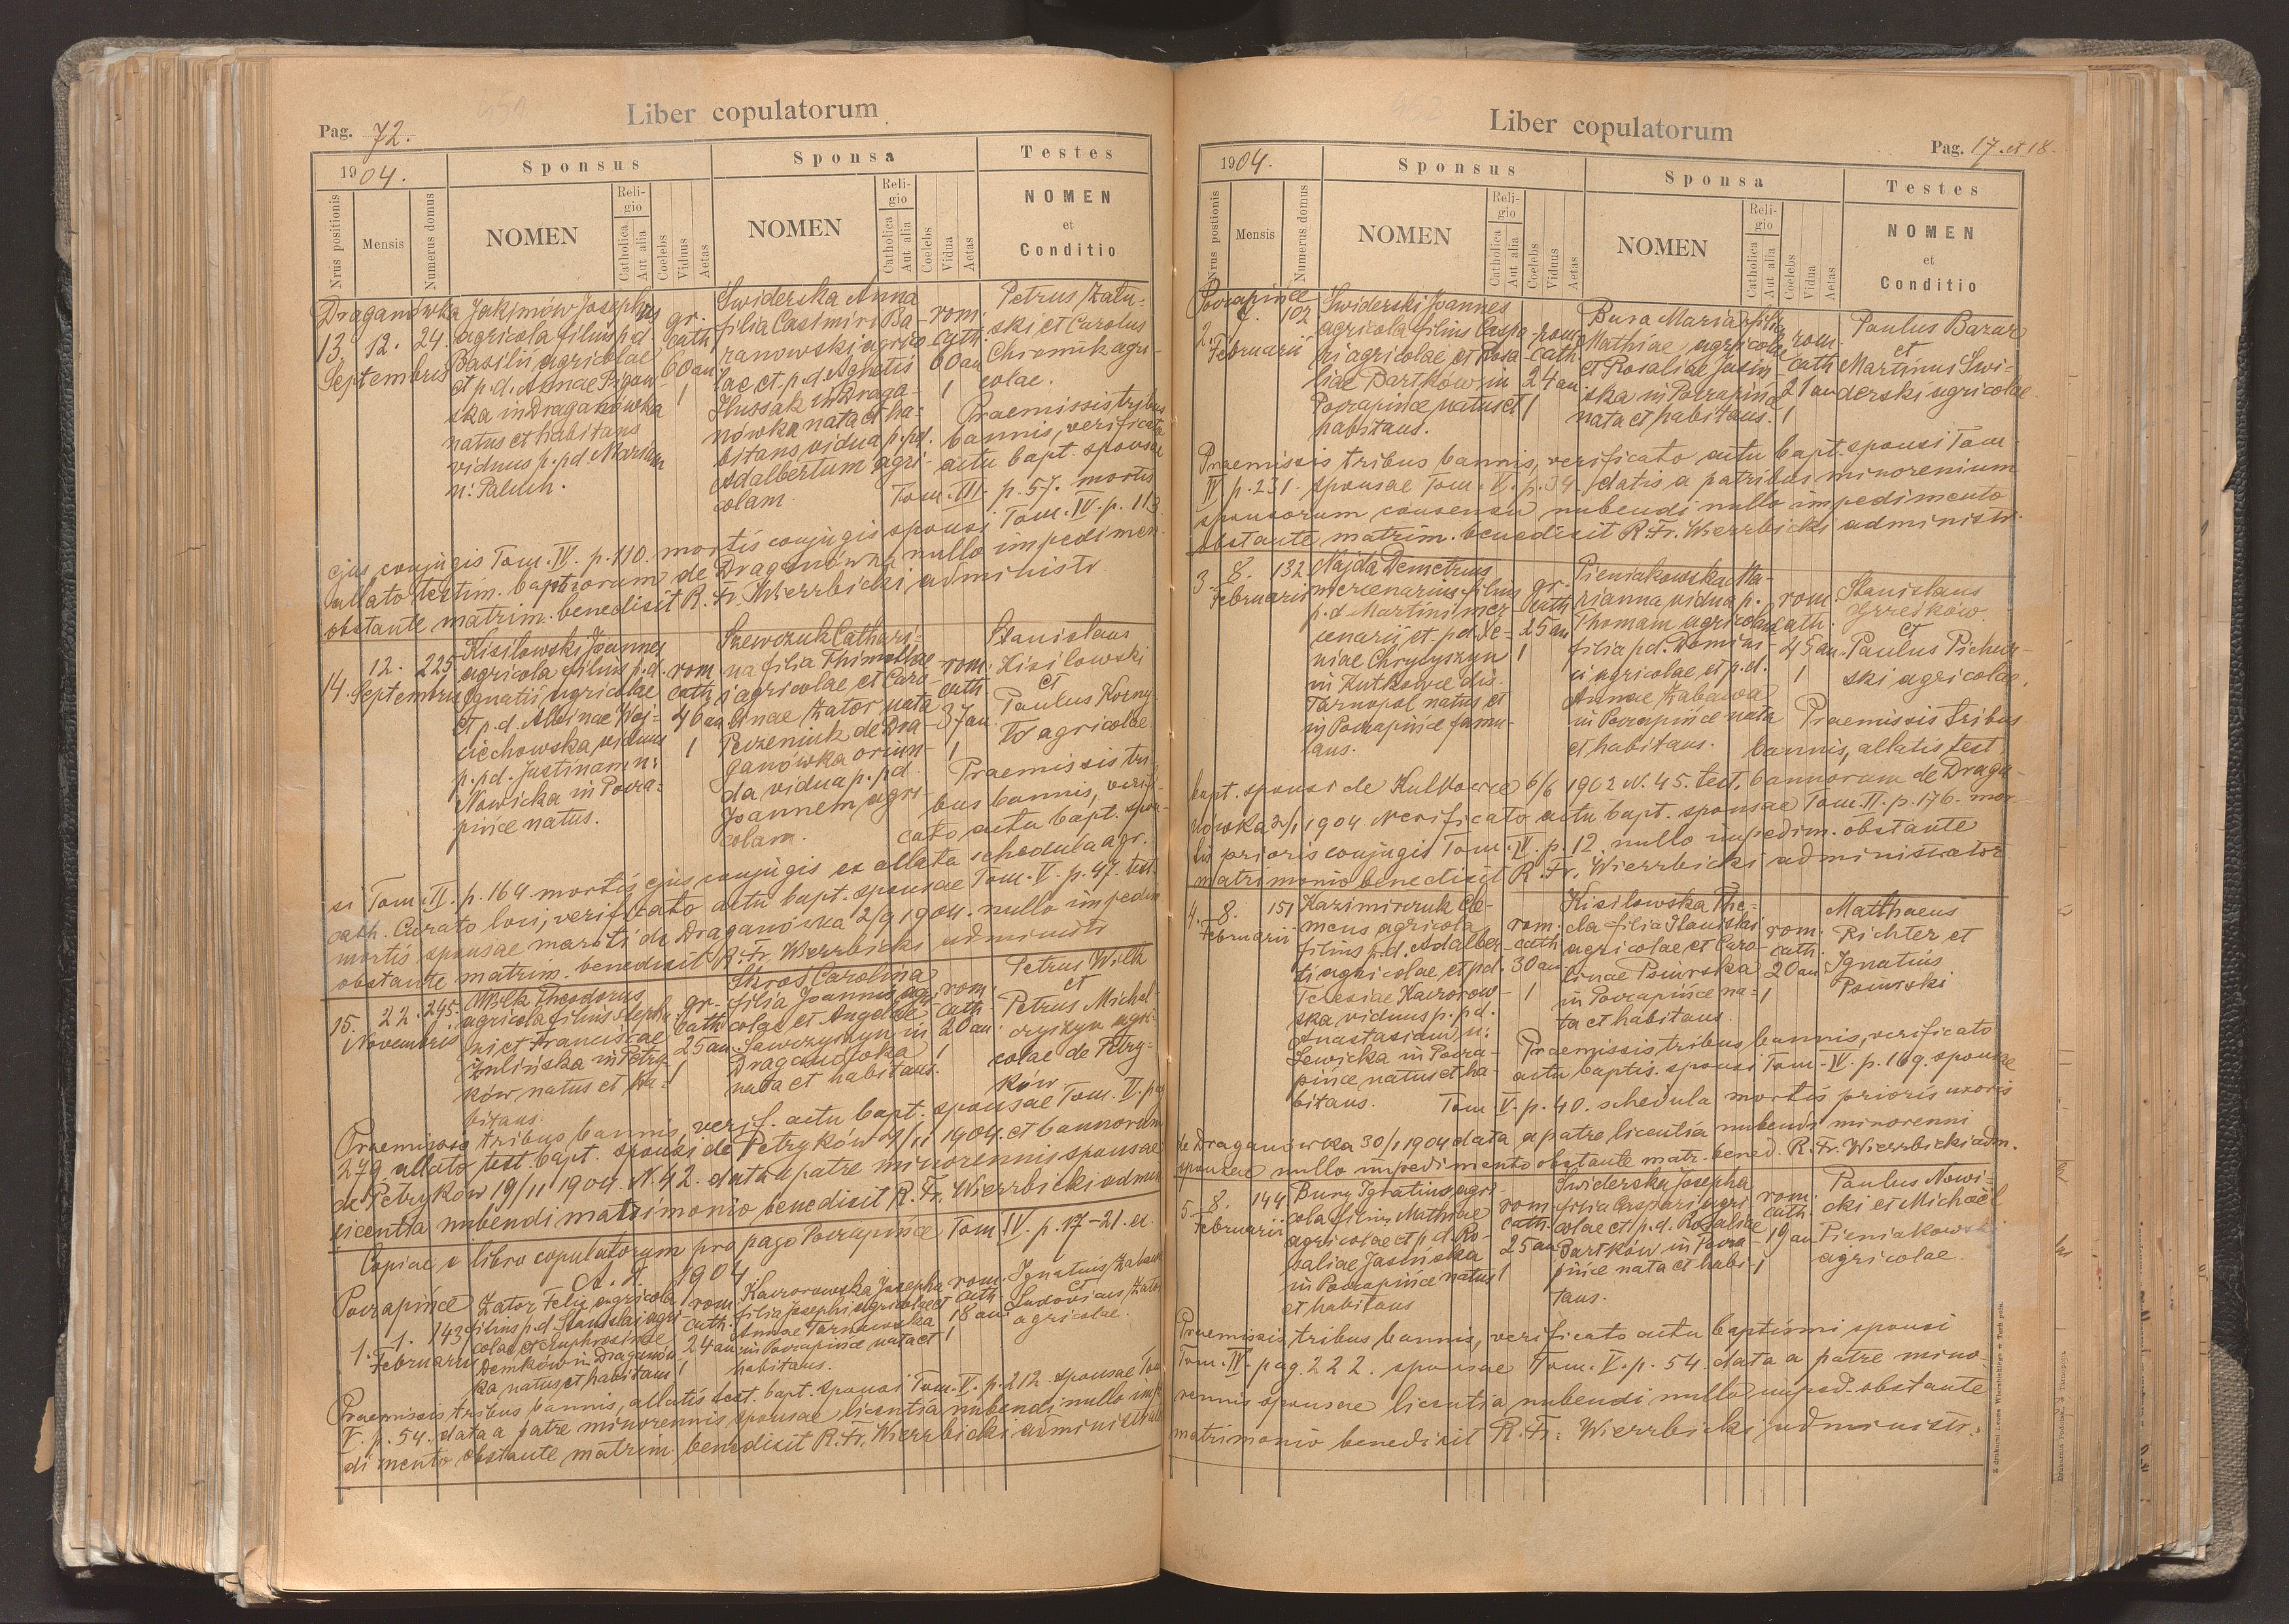 Liber copulatorum
Pag. 72.
1904.
Sponsus
Sponsa
Testes
Nrus positionis
Mensis
Numerus domus
NOMEN
Religio
Catholica
Aut alia
Coelebs
Viduus
Aetas
NOMEN
Religio
Catholica
Aut alia
Coelebs
Vidua
Aetas
NOMEN
et
Conditio
Draganówka
13.
12.
Septembris
24.
Jakimów Josephus
agricola filius p.d.
Basilii agricolae
et p.d. Annae
ska in Draganówka
natus et habitans
viduus p. p.d. Mariam
n: Paluch.
gr.
cath
60 an
1
Swiderska Anna
filia Casimiri Ba-
ranowski agrico
lae et p.d. Agnetis
Hussak in Draga-
nówka nata et ha-
bitans vidua p. pd.
Adalbertum agri-
colam
rom.
cath.
60 an
1
Petrus Zatu-
ski et Carolus
Chromik agri-
colae.
Praemissis tribus
bannis, verificato
actu bapt. sponsae
Tom. III. p. 57. mortis
ejus conjugis Tom. IV. p. 110. mortis conjugis sponsi Tom. IV. p. 113
allato testim. baptizorum de Draganówka nullo impedimen-
obstante matrim. benedixit R. Fr. Wierzbicki administr
14.
12.
Septembris
225
Kisilowski Joannes
agricola filius p.d.
Ignatii agricolae
et p.d. Albinae Woj-
ciechowska, viduus
p. pd. Justinam n:
Nowicka in Poczapińce natus.
rom
cath
46 an
1
Szewczuk Cathari-
na filia Thimothe
i agricolae et Caro-
linae Zator nata
Peczeniuk de Dra-
ganówka oriun-
da vidua p. pd.
Joannem agri-
colam.
rom.
cath
37 an.
1
Stanislaus
Kisilowski
et
Paulus Korny-
lo agricolae.
Praemissis tri
bus bannis, verifi-
cato actu bapt. spon-
si Tom. II. p. 164. mortis ejus conjugis ex allata schedula a gr.
cath. Curato loci, verificato actu bapt. sponsae Tom. V. p. 47. test.
mortis sponsae mariti de Draganówka 2/9 1904. nullo impedim
obstante matrim. benedixit R. Fr. Wierzbicki administr
15.
22.
Novembris
245.
Wilk Theodorus
agricola filius Stepha
ni et Franciscae
Żulińska in Petry-
ków natus et ha-
bitans.
gr.
cath
25 an.
1
Skros Carolina
filia Joannis agri
colae et Angelae
Sawczyszyn in
Draganówka
nata et habitans.
rom.
cath
20 an
1
Petrus Wilk
et
Petrus Michal-
czyszyn agri-
colae de Petry-
ków
Praemissis tribus bannis, verif. actu bapt. sponsae Tom. V. pag
279 allato test. bapt. sponsi de Petryków 4/11 1904. et bannorum
de Petryków 19/11 1904. N. 42. data a patre minorennis sponsae
licentia nubendi matrimonio benedixit R. Fr. Wierzbicki admin
Copiae e libro copulatorum pro pago Poczapińce Tom IV. p. 17-21. ex.
A. D. 1904
Poczapińce
1.
1.
Februarii
143
Zator Felix agricola
filius p.d. Stanislai agri-
colae et Euphrosinae
Demków in Draganów
ka natus et habitans
rom.
cath.
24 an
1
Kaczorowska Josepha
filia Josephi agricolae et
Annae Tarnawska
in Poczapińce nata et
habitans.
rom.
cath.
18 an.
1
Ignatius Zabawa
et
Ludovicus Zator
agricolae.
Praemissis tribus bannis, allatis test. bapt. sponsi Tom. V. p. 212 sponsae Tom
V. p. 54. data a patre minorennis sponsae licentia nubendi nullo impe
dimento obstante matrim. benedixit R. Fr. Wierzbicki administrator
Liber copulatorum
Pag. 17. et 18.
1904.
Sponsus
Sponsa
Testes
Nrus postionis
Mensis
Numerus domus
NOMEN
Religio
Catholica
Aut alia
Coelebs
Viduus
Aetas
NOMEN
Religio
Catholica
Aut alia
Coelebs
Vidua
Aetas
NOMEN
et
Conditio
Poczapińce
2.
Februarii
102
Swiderski Joannes
agricola filius Caspa-
ri agricolae et Rosa-
liae Bartków in
Poczapińce natus et
habitans.
rom.
cath.
24 an
1
Bura Maria filia
Mathiae agricolae
et Rosaliae Jasiń-
ska in Poczapińce
nata et habitans.
rom.
cath
21 an
1
Paulus Bazar
et
Martinus Swi-
derski agricolae
Praemissis tribus bannis, verificato actu bapt. sponsi Tom.
IV p. 231. sponsae Tom. V. p. 34. datis a patribus minorenium
sponsorum consensu nubendi nullo impedimento
obstante matrim. benedixit R. Fr. Wierzbicki administr.
3
8.
Februarii
132
Najda Demetrius
mercenarius filius
p.d Martini mer
cenarii et p.d. Xe-
niae Chryczyszyn
in Kutkowce dis.
Tarnopol natus et
in Poczapińce famu-
lans.
gr.
cath
25 an
1
Pieniakowska Ma-
rianna vidua p.
Thomam agricolam
filia p.d. Domini-
ci agricolae et p.d.
Annae Zabawa
in Poczapińce nata
et habitans.
rom.
cath.
45 an.
1
Stanislaus
et
Paulus Pichur-
ski agricolae.
Praemissis tribus
bannis, allatis test.
bapt. sponsi de Kutkowce 6/6 1902 N. 45. test. bannorum de Draga-
nówka 1904 verificato actu bapt. sponsae Tom. II. p. 176. mor-
tis prioris conjugis Tom. IV. p. 12. nullo impedim. obstante
matrimonio benedixit R. Fr. Wierzbicki administrator
4.
8.
Februarii
151
Kazimirczuk Cle-
mens agricola
filius p.d. Adalber-
ti agricolae et pd.
Teresiae Kaczorow-
ska viduus p. pd.
Anastasiam n:
Lewicka in Pocza-
pińce natus et ha-
bitans.
rom.
cath
30 an.
1
Kisilowska The-
cla filia Stanislai
agricolae et Caro-
linae Psiurska
in Poczapińce na-
ta et habitans.
rom.
cath.
20 an
1
Matthaeus
Richter et
Ignatius
Psiurski
Praemissis tribus bannis, verificato
actu baptis. sponsi Tom. IV. p. 169. sponsae
Tom V. p. 40. schedula mortis prioris uxoris
de Draganówka 30/1 1904 data a patre licentia nubendi minorenni
sponsae nullo impedimento obstante matr. bened. R. Fr. Wierzbicki adm.
5.
8.
Februarii
144
Bury Ignatius agri-
cola filius Mathiae
agricolae et p.d. Ro-
saliae Jasińska
in Poczapińce natus
et habitans
rom
cath.
25 an
1
Swiderska Josepha
filia Caspari agri
colae et p.d. Rosaliae
Bartków in Pocza-
pińce nata et habi-
tans.
rom.
cath.
19 an
1
Paulus Nowi-
cki et Michaël
Pieniakowski
agricolae.
Praemissis tribus bannis, verificato actu baptismi sponsi
Tom. IV. pag. 222. sponsae Tom. V. p. 54. data a patre mino-
rennis sponsae licentia nubendi nullo imped. obstante
matrimonio benedixit R. Fr: Wierzbicki administr.